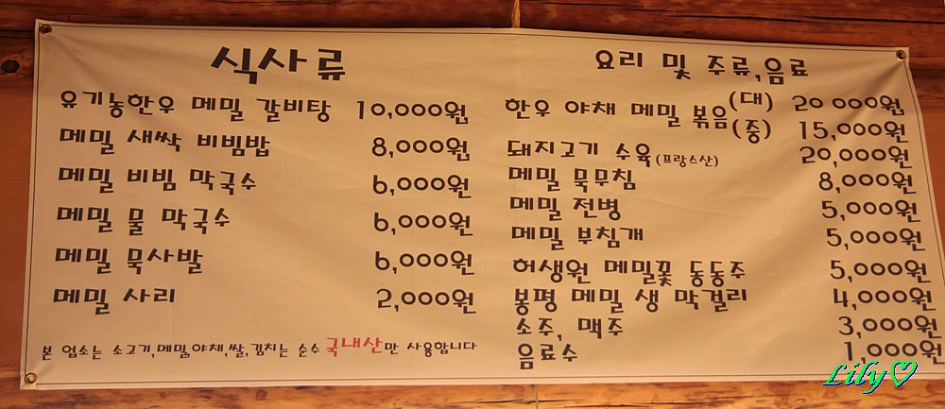 식사류
유기농한우 메밀 갈비탕 10,000원
메밀 새싹 비빔밥 8,000원
메밀 비빔 막국수 6,000원
메밀 물 막국수 6,000원
메밀 묵사발 6,000원
메밀 사리 2,000원
본 업소는 소고기,메밀,야채,쌀,김치는 순수 국내산만 사용합니다
요리 및 주류,음료
한우 야채 메밀 볶음 (대) 20 000원
(중) 15,000원
돼지고기 수육 (프랑스산) 20,000원
메밀 묵무침 8,000원
메밀 전병 5,000원
메밀 부침개 5,000원
허생원 메밀꽃 동동주 5,000원
봉평 메밀 생 막걸리 4,000원
소주, 맥주 3,000원
음료수 1,000원
Lily♡